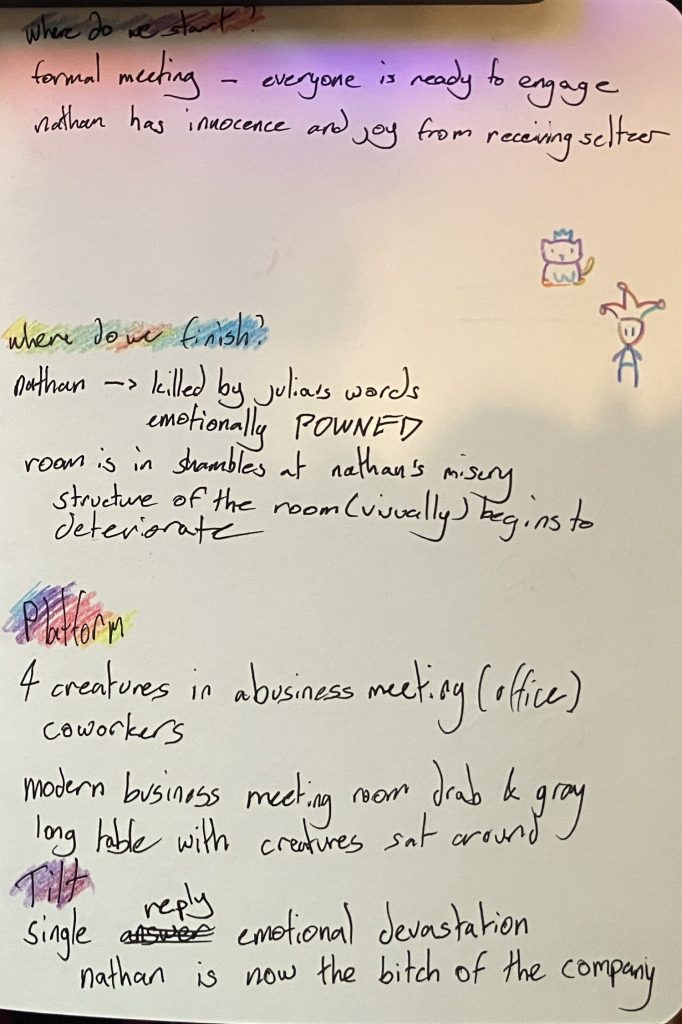 where do we start?
formal meeting - everyone is ready to engage
nathan has innocence and joy from receiving seltzer
where do we finish?
nathan --> killed by julia's words
emotionally POWNED
room is in shambles at nathan's misery
structure of the room (visually) begins to
deteriorate
Platform
4 creatures in a business meeting (office)
coworkers
modern business meeting room drab & gray
long table with creatures sat around
Tilt
reply
single answer emotional devastation
nathan is now the bitch of the company